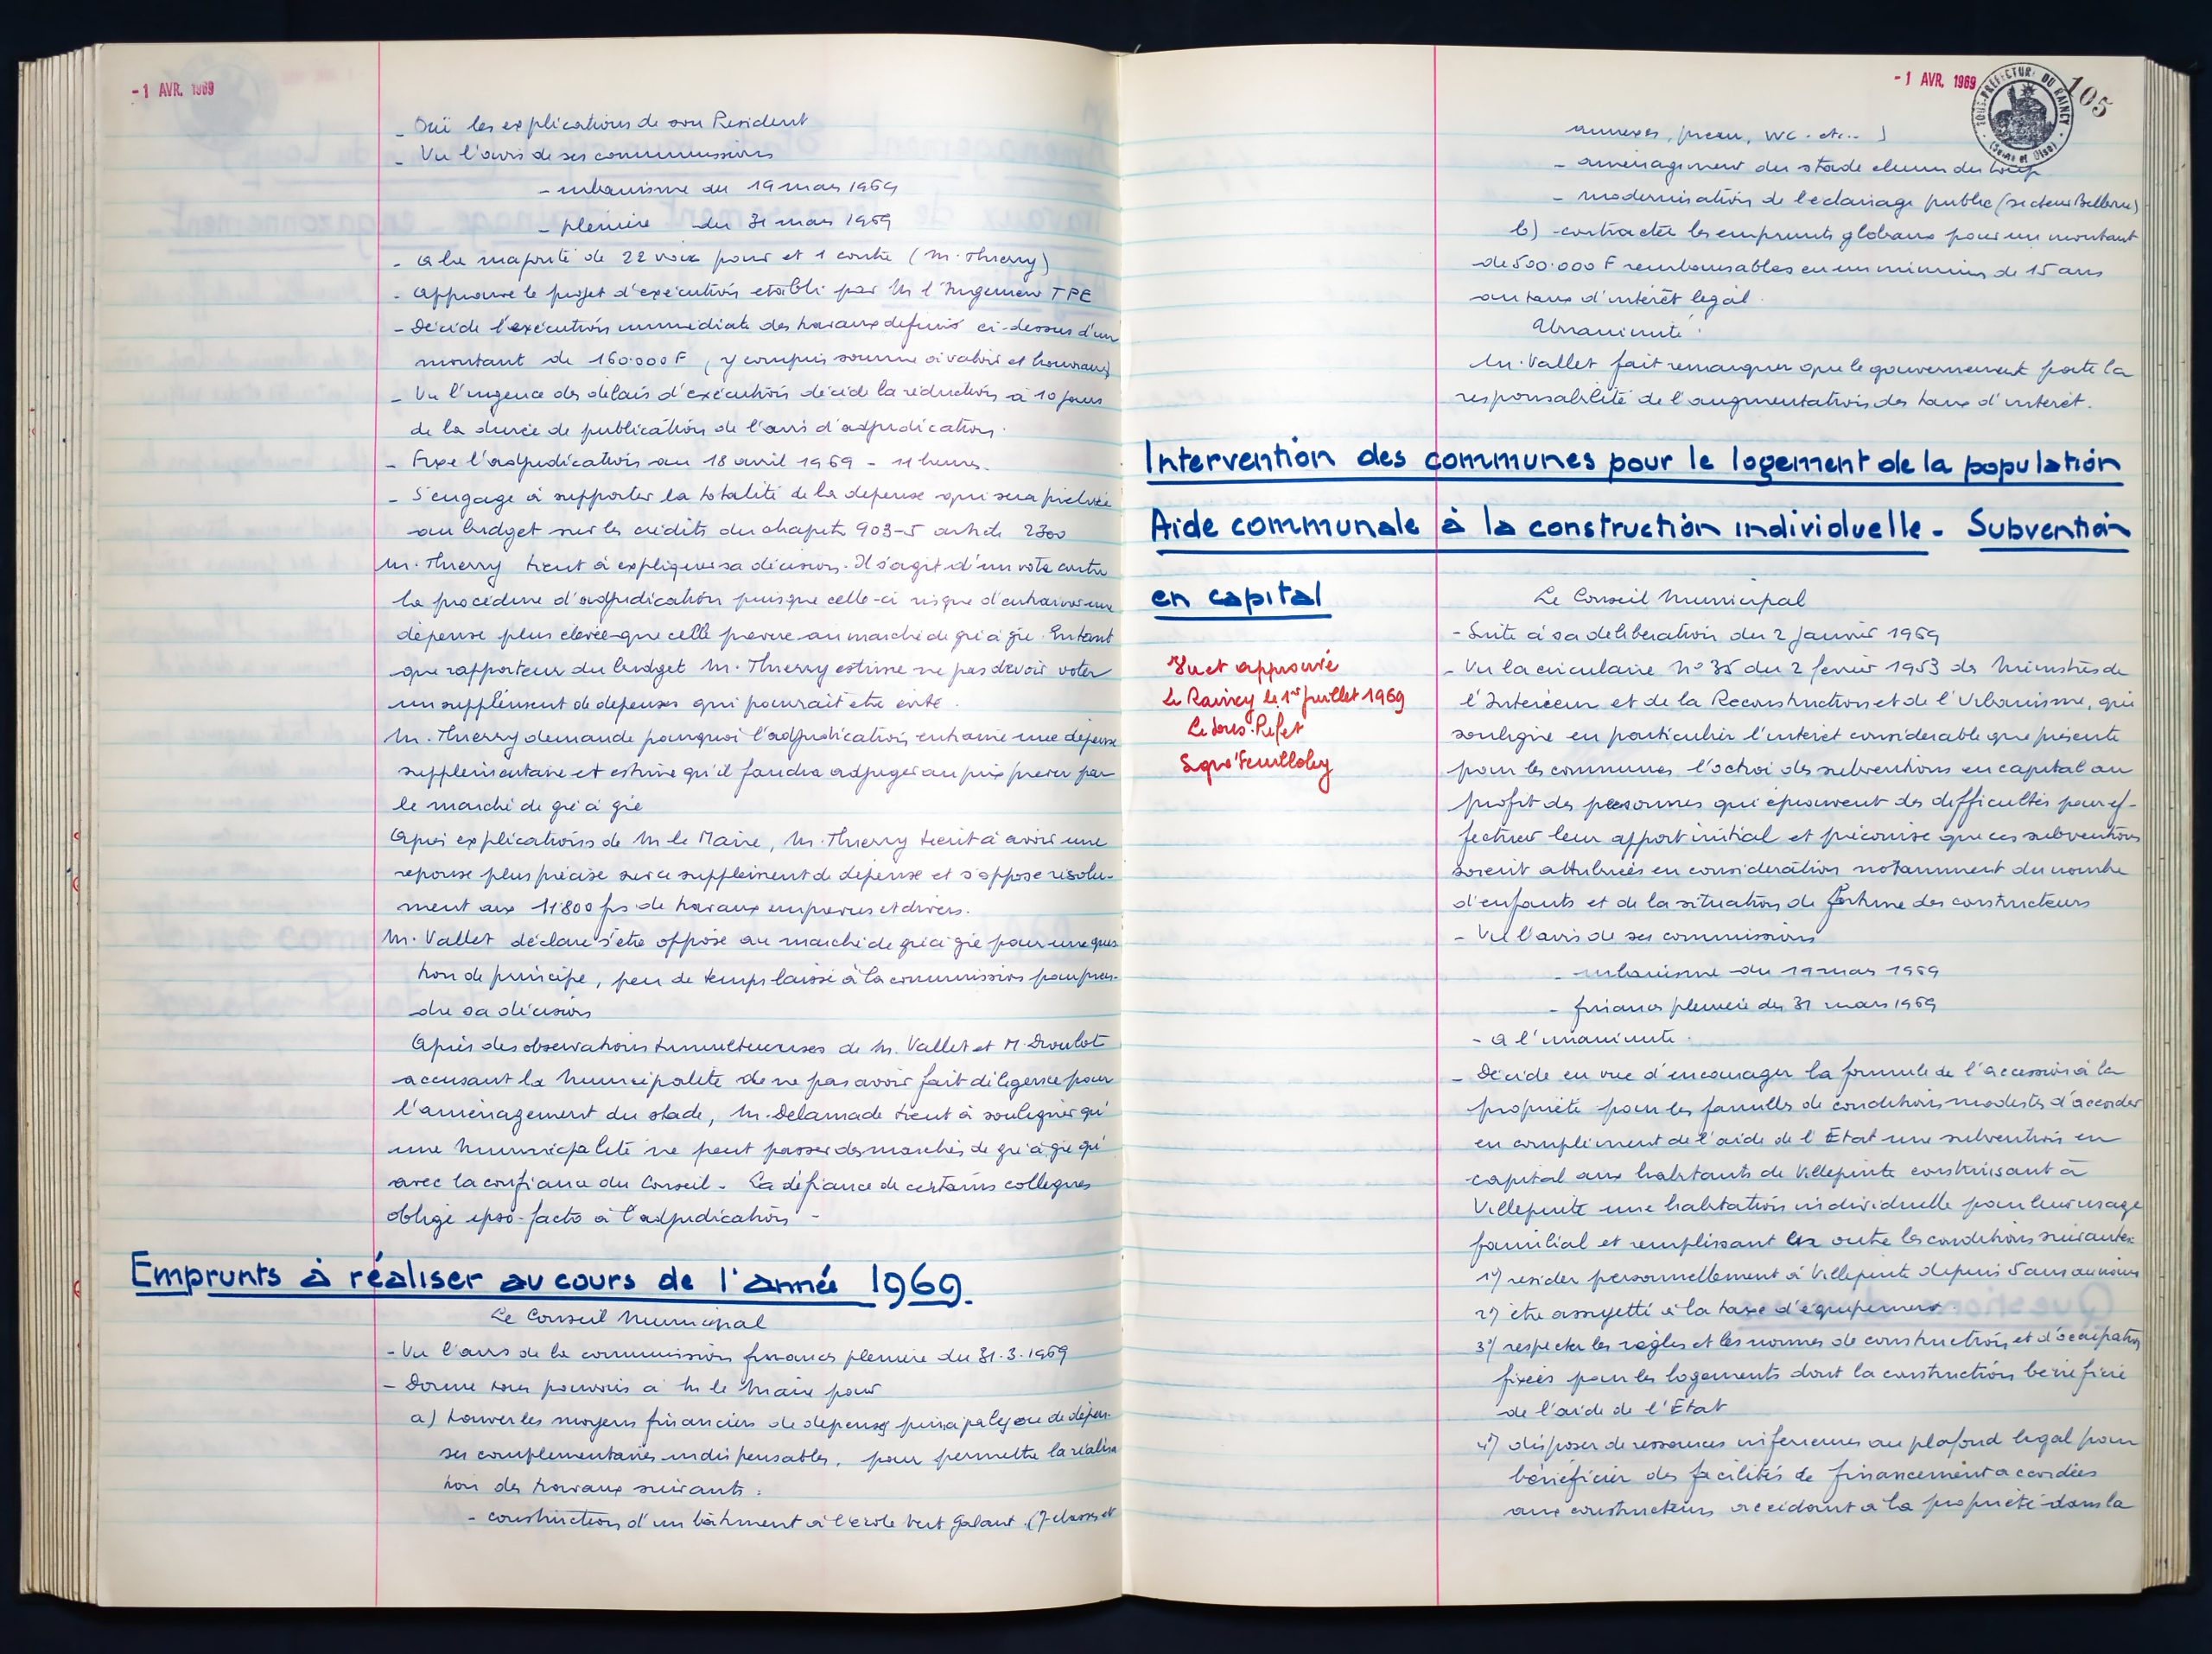 - 1 AVR. 1969
- Ouï les explications de son President
- Vu l'avis de ses commissions
- urbanisme du 19 mars 1969
- pleniere du 31 mars 1969
- a la majorité de 22 voix pour et 1 contre (M. Thierry)
- approuve le projet d'exécution etabli par M l'Ingenieur TPE
- Décide l'exécution immédiate des travaux definis ci-dessus d'un
montant de 160.000 F (y compris somme à valoir et honoraires)
- Vu l'urgence des délais d'exécution décide la réduction à 10 jours
de la durée de publication de l'avis d'adjudication.
- Fixe l'adjudication au 18 avril 1969 - 11 heures.
- S'engage à supporter la totalité de la depense qui sera prelevée
au budget sur les crédits du chapitre 903-5 article 2300
M. Thierry tient à expliquer sa décision. Il s'agit d'un vote contre
la procédure d'adjudication puisque celle-ci risque d'entrainer une
dépense plus élevée que celle prevue au marché de gré à gré. En tant
que rapporteur du budget M. Thierry estime ne pas devoir voter
un supplément de depenses qui pourrait etre évité.
M. Thierry demande pourquoi l'adjudication entraine une dépense
supplémentaire et estime qu'il faudra adjuger au prix prevu par
le marché de gré à gré
Après explications de M le Maire, M. Thierry tient à avoir une
reponse plus précise sur ce supplément de dépense et s'oppose résolu-
ment aux 11800 frs de travaux imprevus et divers.
M. Vallet déclare s'etre opposé au marché de gré à gré pour une ques
tion de principe, peu de temps laissé à la commission pour pren-
dre sa décision
Après des observations tumultueuses de M. Vallet et M. Droulot
accusant la Municipalité de ne pas avoir fait diligence pour
l'aménagement du stade, M. Delamade tient à souligner qu'
une Municipalité ne peut passer des marchés de gré à gré qu'
avec la confiance du Conseil. La défiance de certains collegues
oblige ipso-facto à l'adjudication -
Emprunts à réaliser au cours de l'année 1969.
Le Conseil Municipal
- Vu l'avis de la commission finances pleniere du 31.3.1969
- Donne tous pouvoirs à M le Maire pour
a) trouver les moyens financiers de depenses principales ou de dépen-
ses complementaires indispensables, pour permettre la réalisa
tion des travaux suivants :
- construction d'un bâtiment à l'école Vert Galant (7 classes et
- 1 AVR. 1969
SOUS-PRÉFECTURE DU RAINCY
(Seine et Oise)
105
annexes, preau, WC. etc.. )
- aménagement du stade chemin du Loup
- modernisation de l'eclairage public (secteur Bellevue)
b) contracter les emprunts globaux pour un montant
de 500.000 F remboursables en un minimum de 15 ans
au taux d'intérêt legal.
Unanimité.
M. Vallet fait remarquer que le gouvernement porte la
responsabilité de l'augmentation des taux d'interet.
Intervention des communes pour le logement de la population
Aide communale à la construction individuelle - Subvention
en capital
Vu et approuvé
Le Raincy le 1er juillet 1969
Le Sous-Prefet
Signé Feuilloley
Le Conseil Municipal
- Suite à sa deliberation du 2 Janvier 1969
- Vu la circulaire N° 35 du 2 fevrier 1953 des Ministres de
l'Interieur et de la Reconstruction et de l'Urbanisme, qui
souligne en particulier l'intéret considerable que présente
pour les communes l'octroi des subventions en capital au
profit des personnes qui éprouvent des difficultés pour ef-
fectuer leur apport initial et préconise que ces subventions
soient attribuées en considération notamment du nombre
d'enfants et de la situation de fortune des constructeurs
- Vu l'avis de ses commissions
- urbanisme du 19 mars 1969
- finances pleniere du 31 mars 1969
- a l'unanimite.
- Décide en vue d'encourager la formule de l'accession à la
propriété pour les familles de conditions modestes d'accorder
en complément de l'aide de l'Etat une subvention en
capital aux habitants de Villepinte construisant à
Villepinte une habitation individuelle pour leur usage
familial et remplissant en outre les conditions suivantes:
1°/ resider personnellement à Villepinte depuis 5 ans au moins
2°/ etre assujetti à la taxe d'équipement
3°/ respecter les règles et les normes de construction et d'occupation
fixées pour les logements dont la construction bénéficie
de l'aide de l'État
4°/ disposer de ressources inferieures au plafond legal pour
bénéficier des facilités de financement accordées
aux constructeurs accédant à la propriété dans la